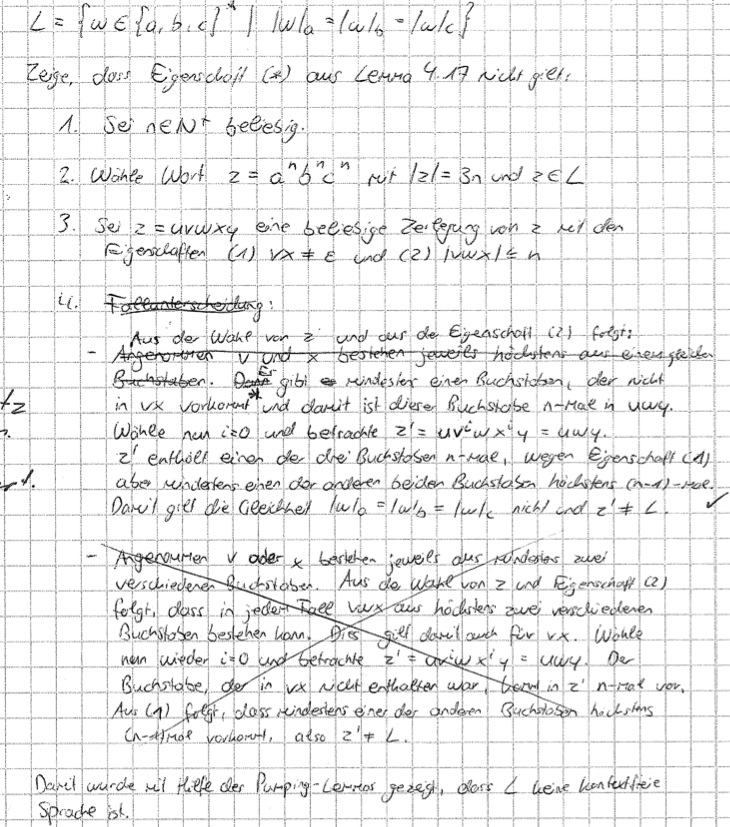 L = {w ∈ {a, b, c}* | |w|a = |w|b = |w|c}
Zeige, dass Eigenschaft (*) aus Lemma 4.17 nicht gilt:
1. Sei n∈N⁺ beliebig.
2. Wähle Wort z = aⁿbⁿcⁿ mit |z| = 3n und z ∈ L
3. Sei z = uvwxy eine beliebige Zerlegung von z mit den
Eigenschaften (1) vx ≠ ε und (2) |vwx| ≤ n
4. Fallunterscheidung:
Aus der Wahl von z und aus der Eigenschaft (2) folgt:
- Angenommen v und x bestehen jeweils höchstens aus einem gleichen
Buchstaben. Dann Es gibt mindestens einen Buchstaben, der nicht
in vx vorkommt* und damit ist dieser Buchstabe n-Mal in uwy.
tz
Wähle nun i=0 und betrachte z' = uvⁱwxⁱy = uwy.
z' enthält einen der drei Buchstaben n-Mal, wegen Eigenschaft (1)
aber mindestens einen der anderen beiden Buchstaben höchstens (n-1)-Mal.
Damit gilt die Gleichheit |w|a = |w|b = |w|c nicht und z' ≠ L. ✓
- Angenommen v oder x bestehen jeweils aus mindestens zwei
verschiedenen Buchstaben. Aus der Wahl von z und Eigenschaft (2)
folgt, dass in jedem Fall vwx aus höchstens zwei verschiedenen
Buchstaben bestehen kann. Dies gilt damit auch für vx. Wähle
nun wieder i=0 und betrachte z' = uvⁱwxⁱy = uwy. Der
Buchstabe, der in vx nicht enthalten war, kommt in z' n-Mal vor.
Aus (1) folgt, dass mindestens einer der anderen Buchstaben höchstens
(n-1)Mal vorkommt, also z' ≠ L.
Damit wurde mit Hilfe des Pumping-Lemmas gezeigt, dass L keine kontextfreie
Sprache ist.